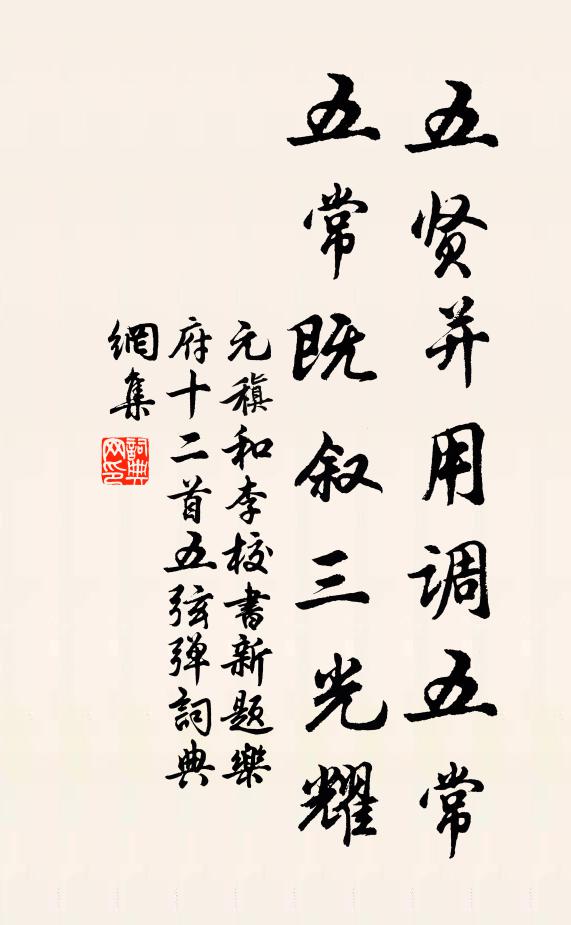 五贤并用调五常
五常既叙三光耀
元稹和李校書新题樂
府十二首五弦弹詞典
網集
詞典网印